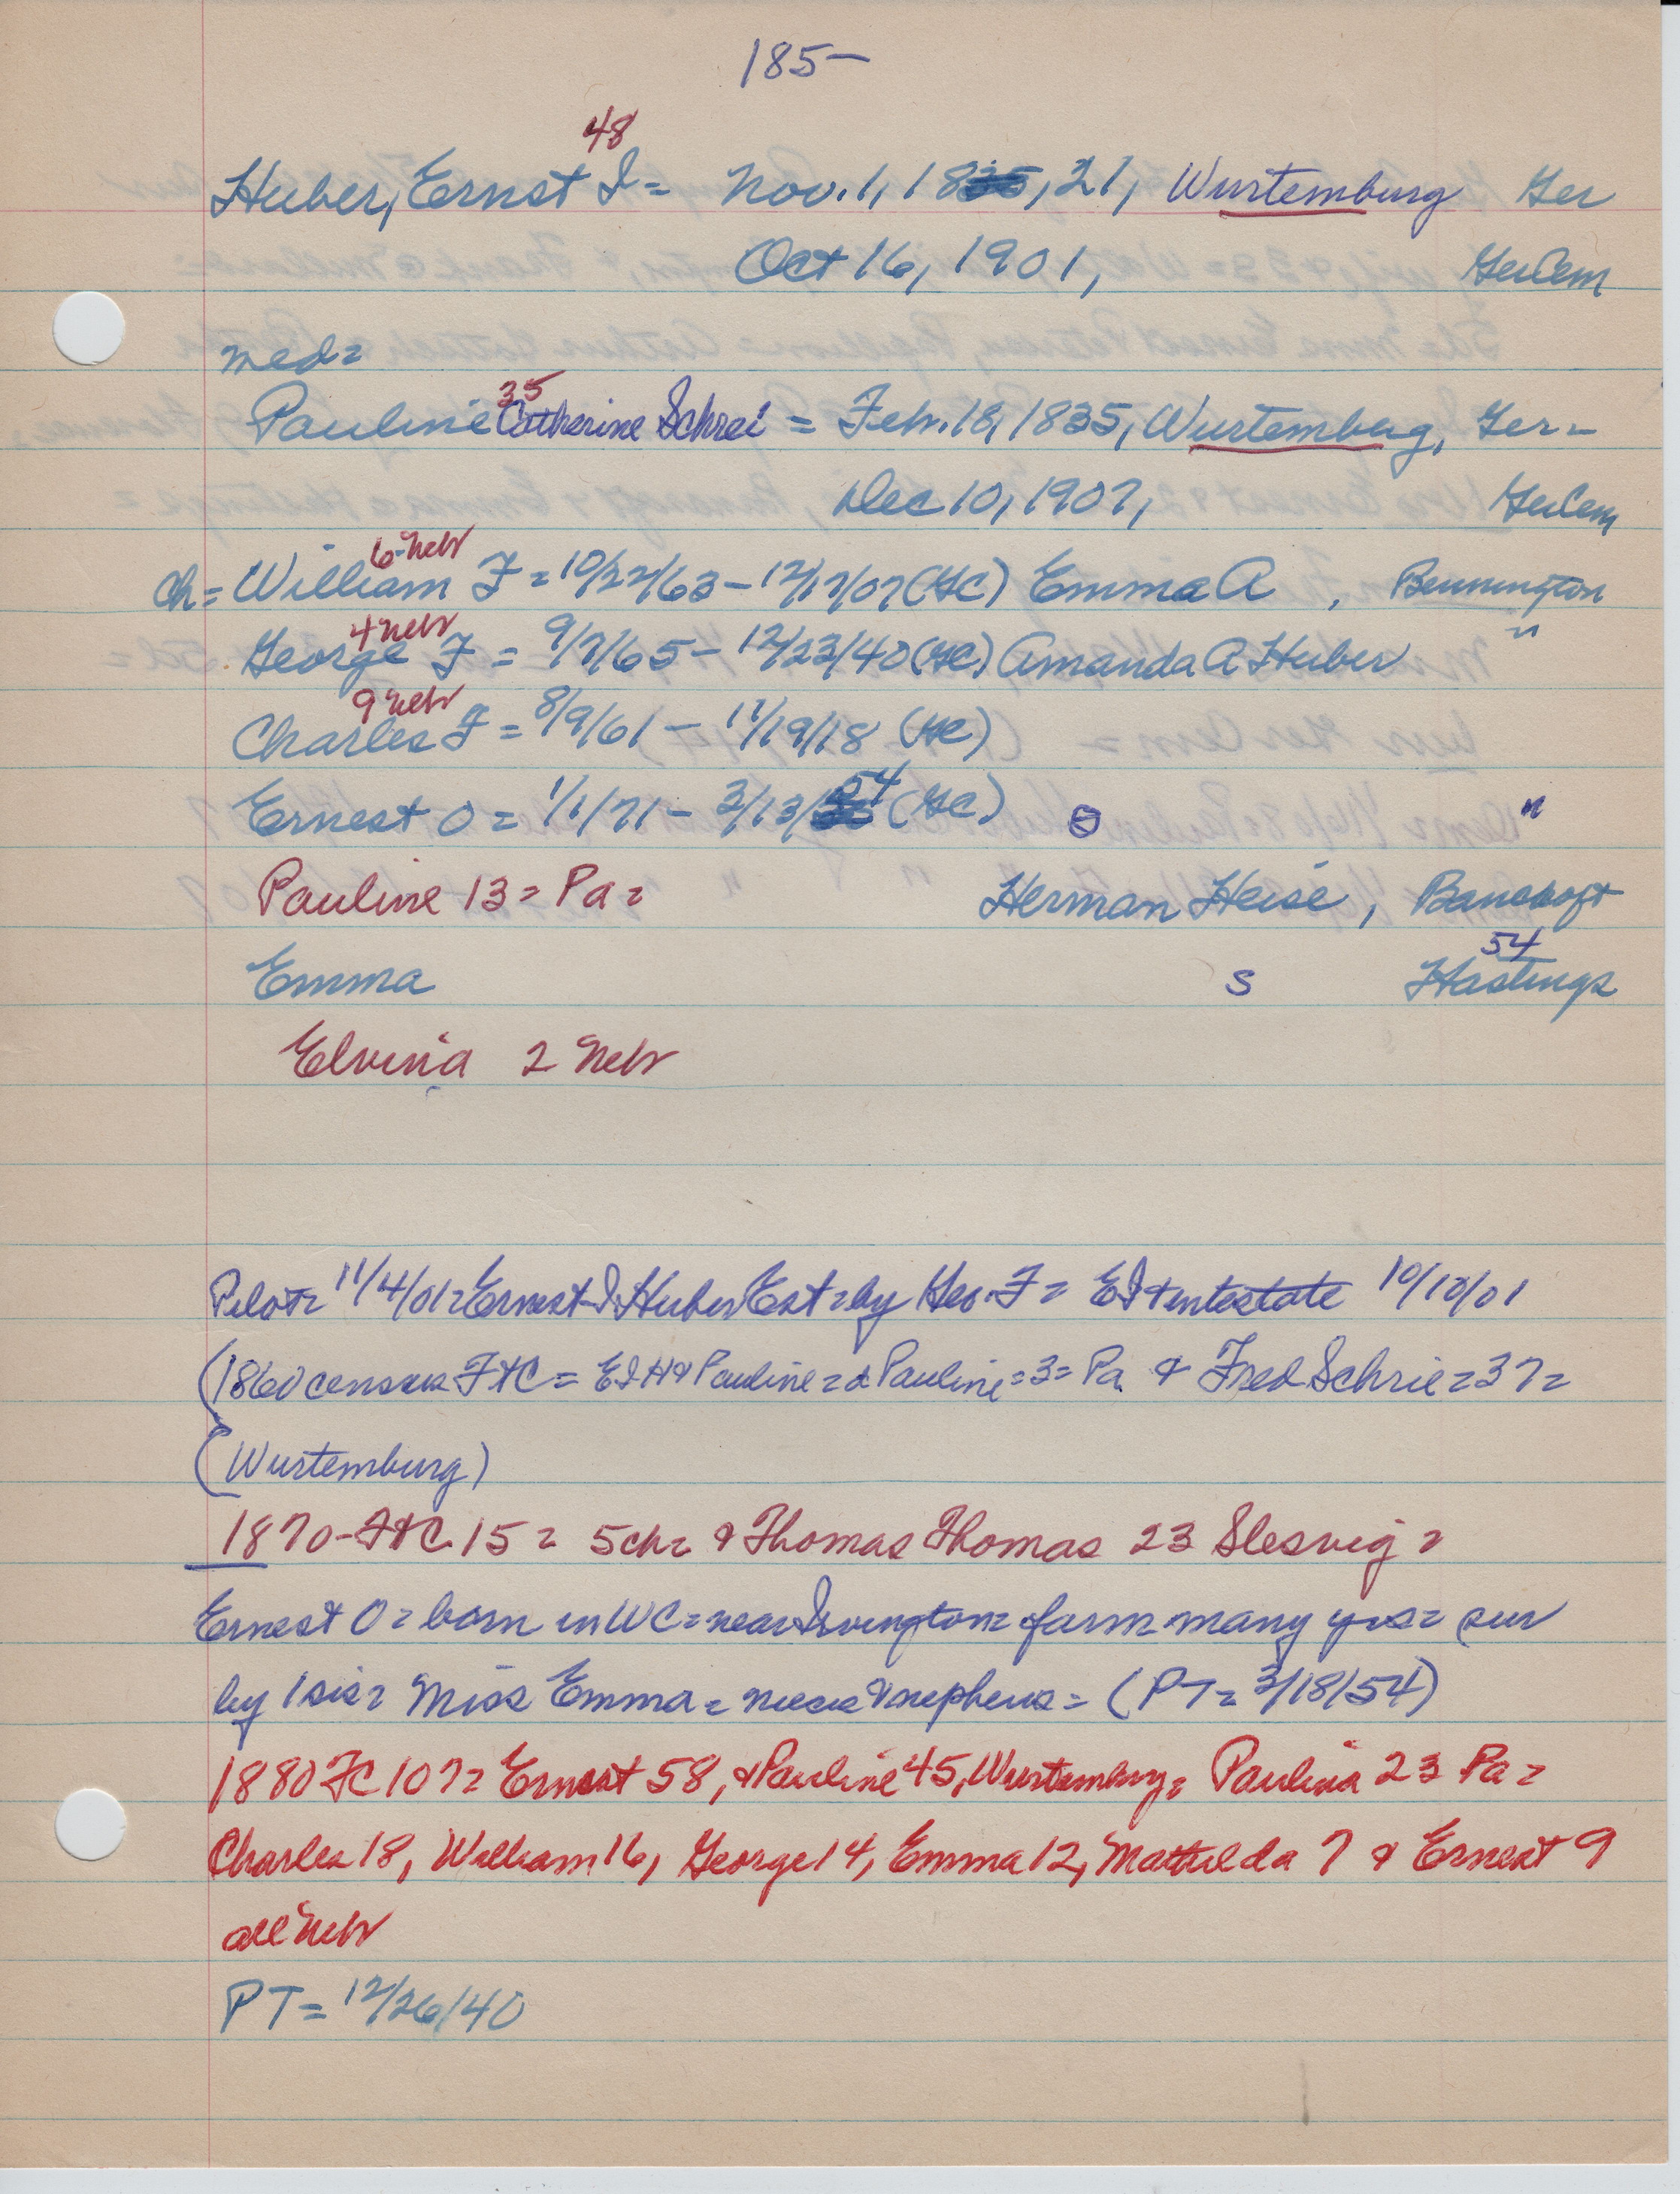 185-
48
Huber, Ernst I = Nov. 1, 1835, 21, Wurtemburg Ger
Oct 16, 1901, GerCem
med=
35
Pauline Catherine Schrei = Feb. 18, 1835, Wurtemburg, Ger=
Dec 10, 1907, GerCem
6-Neb
Ch= William F = 10/22/63 - 12/17/07 (GC) Emma A , Bennington
4 Neb
George F = 9/7/65 - 12/23/40 (GC) Amanda A Huber "
9 Neb
Charles F = 8/9/61 - 11/19/18 (GC)
54
Ernest O = 1/1/71 - 3/13/ (GC) "
Pauline 13 = Pa = Herman Heise, Bancroft
54
Emma S Hastings
Elvina 2 Neb
11/4/01 = Ernest I Huber Est = by Geo. F = EI + entestate 10/10/01
(1860 census FtC = EIH & Pauline = d Pauline = 3 = Pa & Fred Schrie = 37 =
(Wurtemburg)
1870 - FtC 15 = 5ch = & Thomas Thomas 23 Slesvig =
Ernest O = born in WC = near Irvington = farm many yrs = sur
by 1 sis = Miss Emma = niece & nephews = (PT = 3/18/54)
1880 FC 107 = Ernest 58, & Pauline 45, Wurtemburg = Paulina 23 Pa =
Charles 18, William 16, George 14, Emma 12, Mathilda 7 & Ernest 9
all Neb
PT = 12/26/40